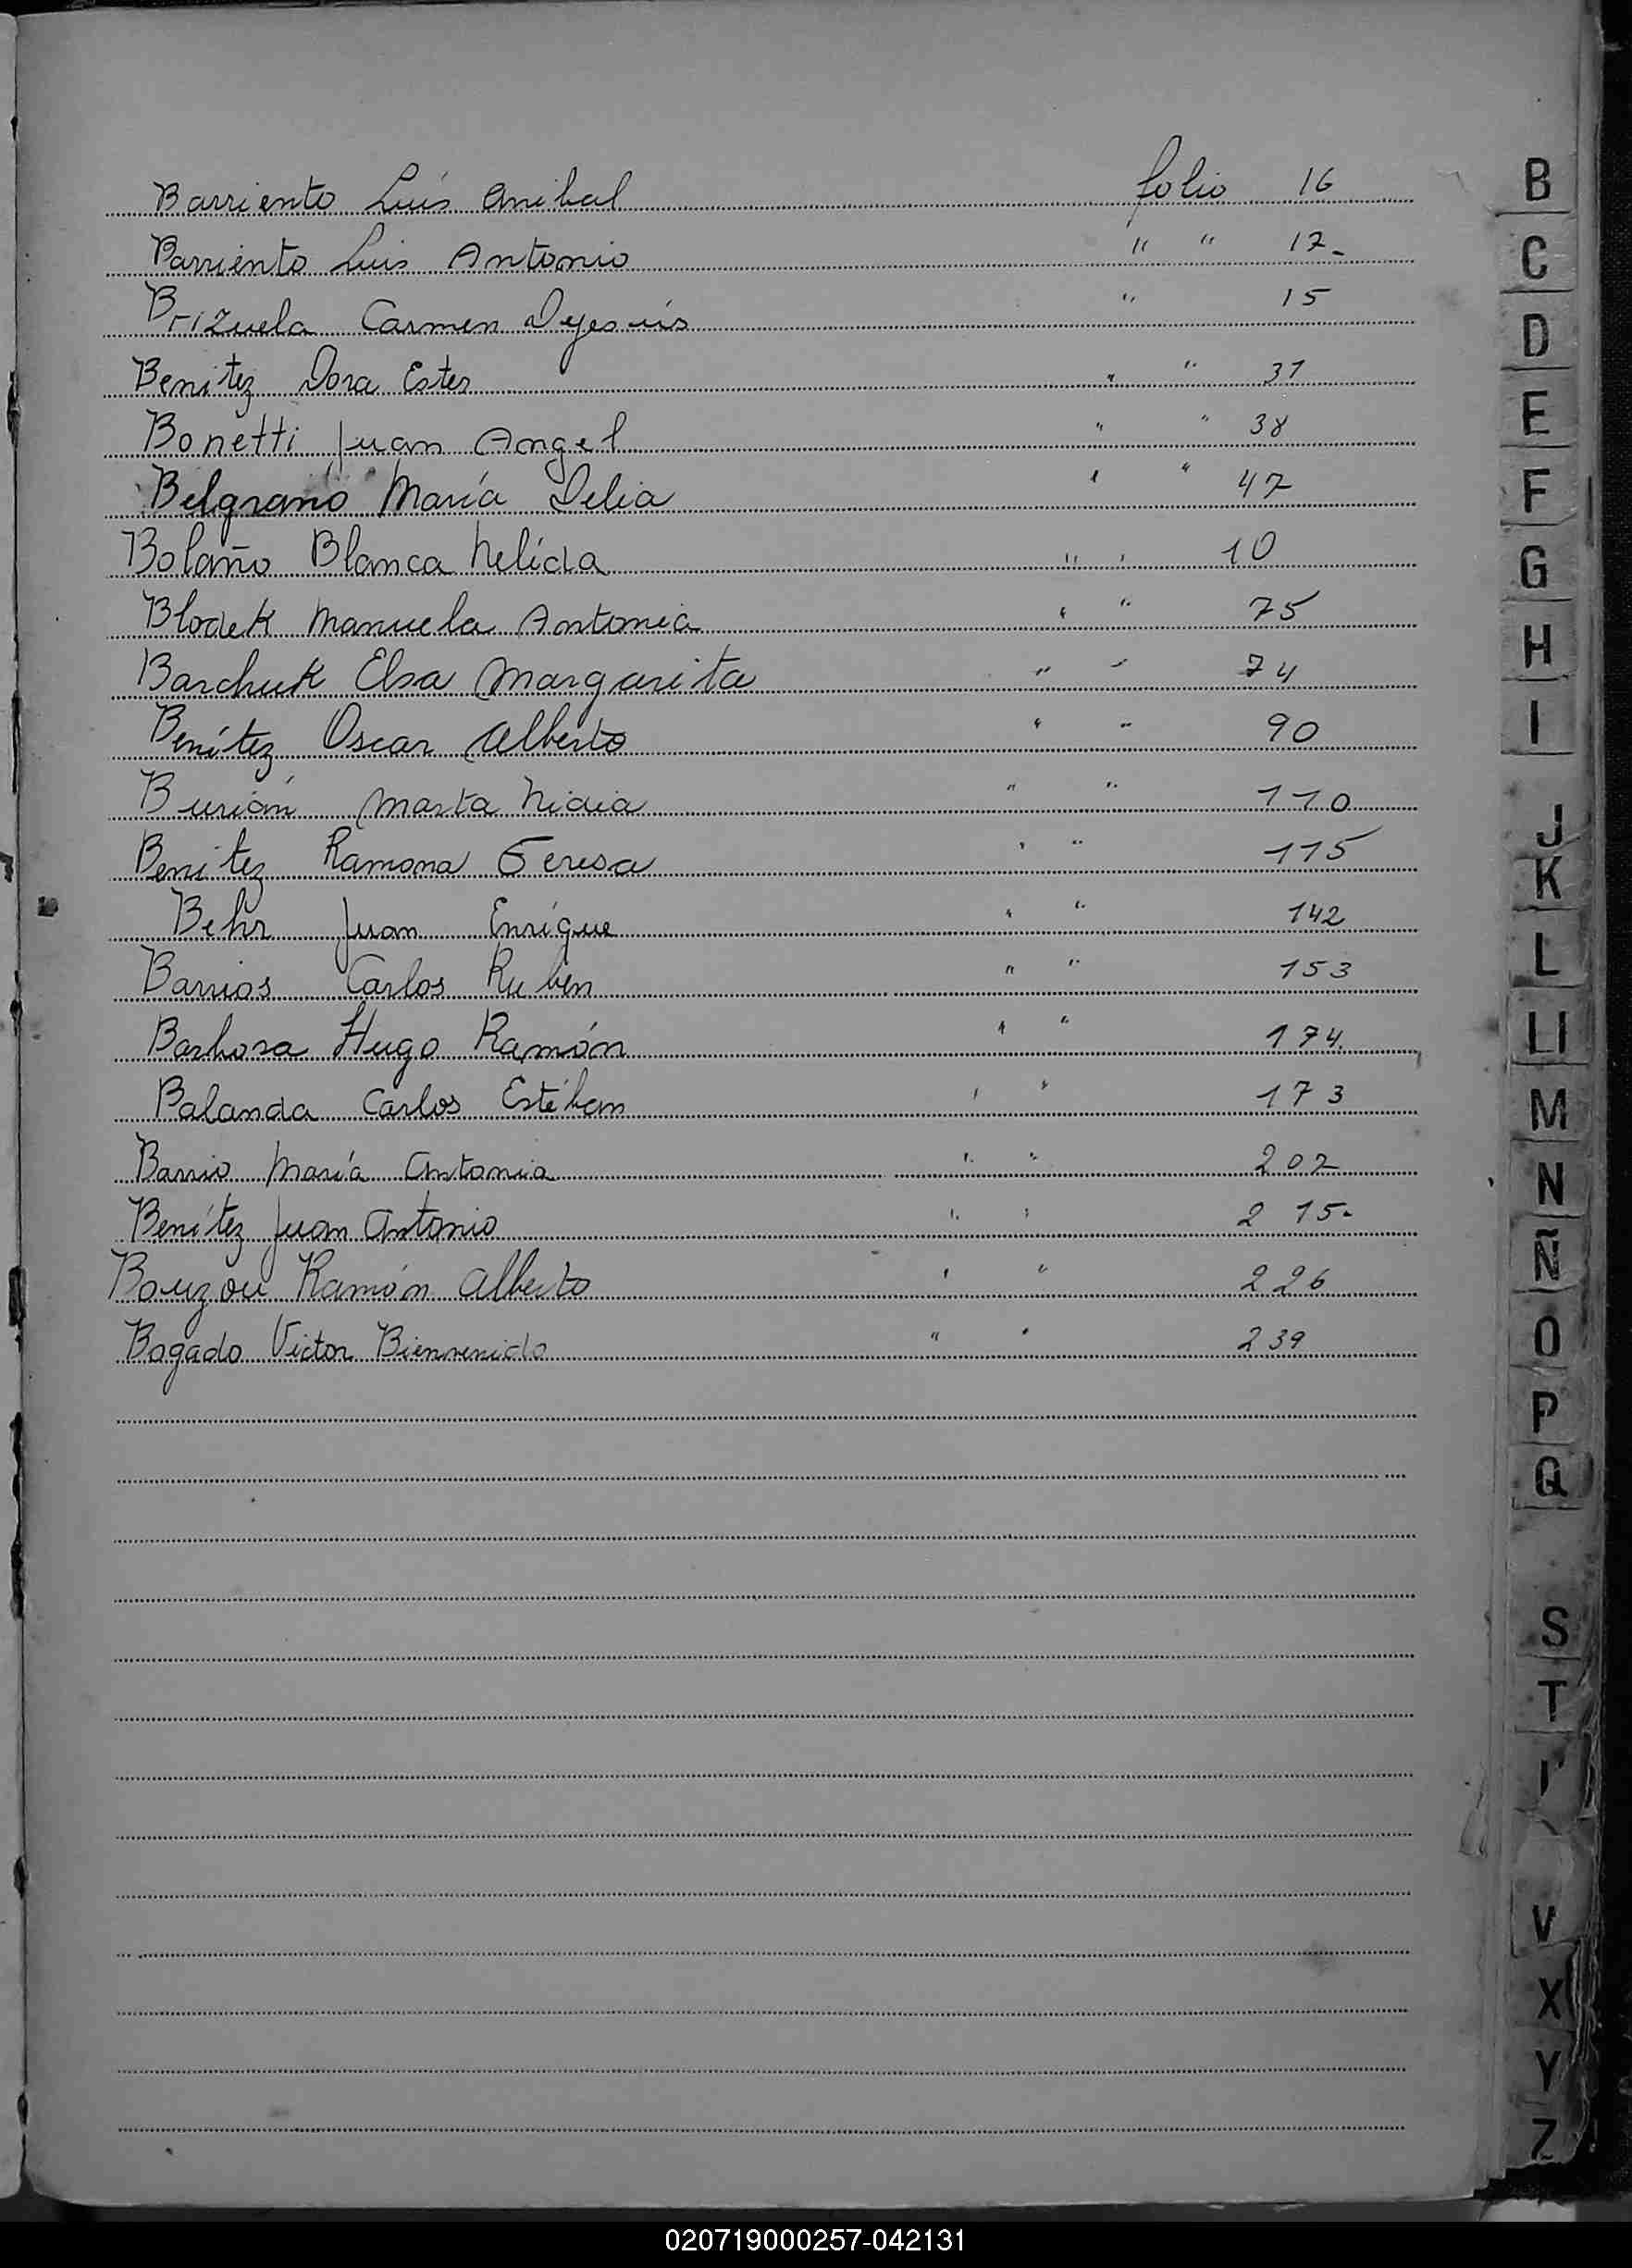 Barriento Luís Anibal folio 16
Barriento Luis Antonio " " 17-
Brizuela Carmen Dejesús " 15
Benitez Dora Ester " " 31
Bonetti Juan Angel " " 38
Belgrano María Delia " " 47
Bolaño Blanca Nelída " " 10
Blodek Manuela Antonia " " 75
Barchuk Elsa Margarita " " 74
Benítez Oscar Alberto " " 90
Burián Marta Nidia " " 110
Benitez Ramona Teresa " " 115
Behr Juan Enrique " " 142
Barrios Carlos Ruben " " 153
Barbosa Hugo Ramón " " 174.
Balanda Carlos Estéban " " 173
Barrio María Antonia " " 207
Benítez Juan Antonio " " 215-
Bouzou Ramón Alberto " " 226
Bogado Victor Bienvenido " " 239
B
C
D
E
F
G
H
I
J
K
L
Ll
M
N
Ñ
O
P
Q
S
T
V
X
Y
Z
020719000257-042131